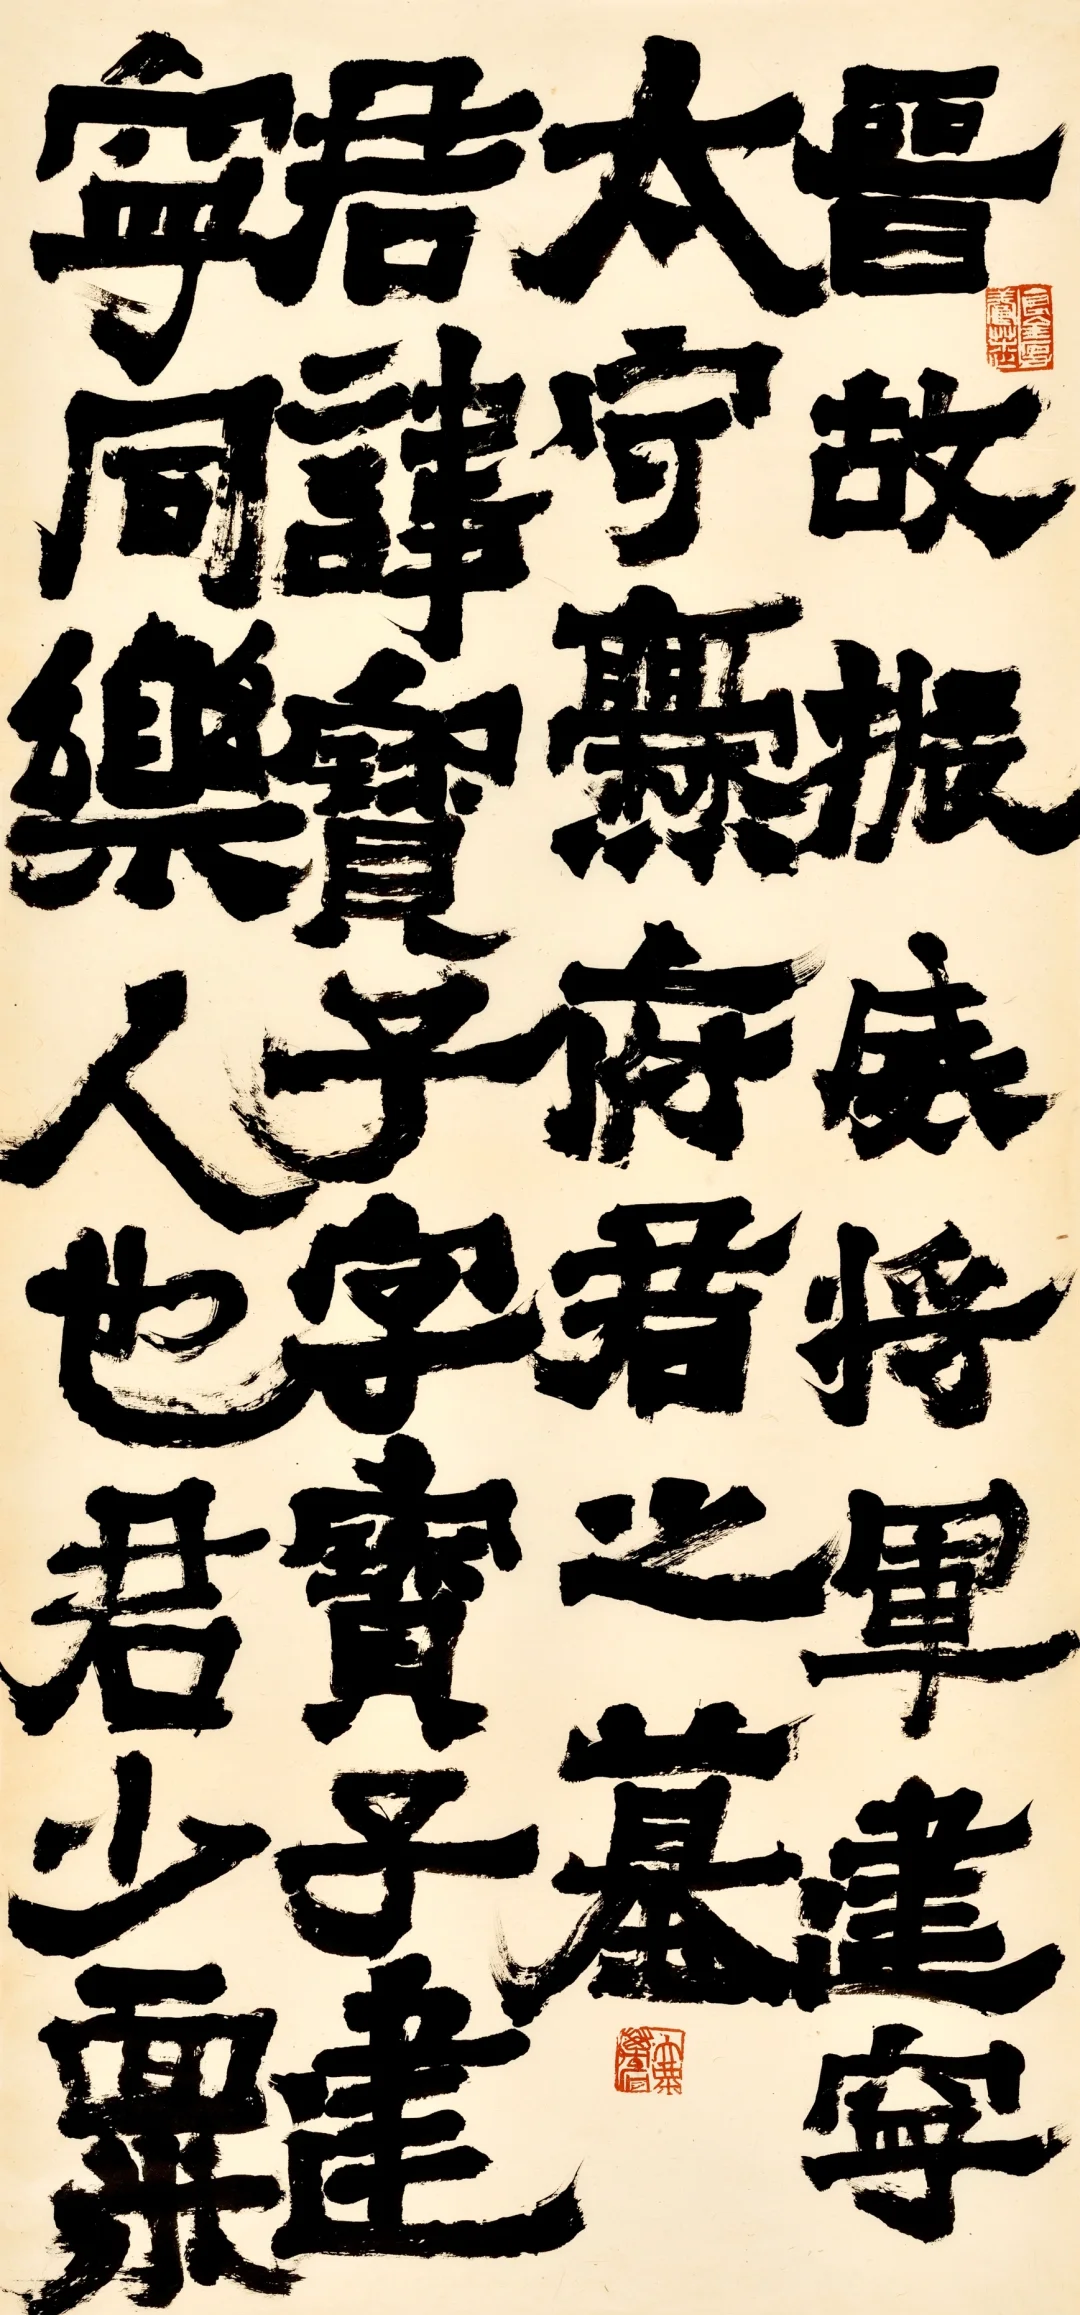 晉故振威將軍建寧
太守爨府君之墓
君諱寶子字寶子建
寧同樂人也君少稟